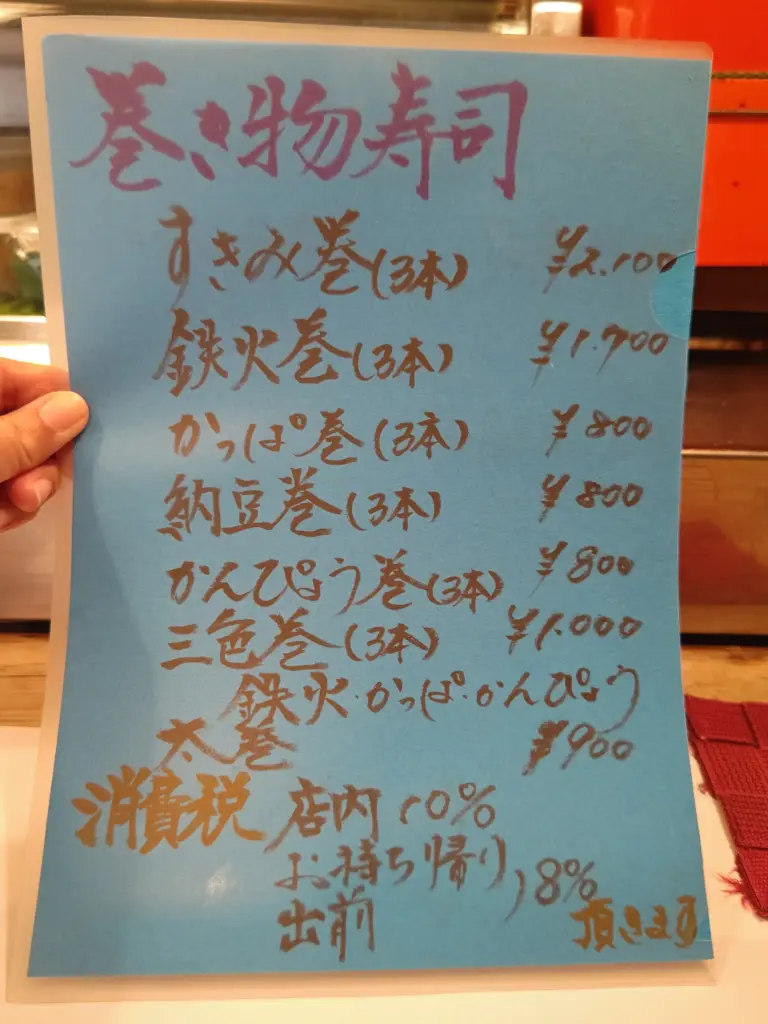 巻き物寿司
すきみ巻(3本) ¥2.100
鉄火巻(3本) ¥1.700
かっぱ巻(3本) ¥800
納豆巻(3本) ¥800
かんぴょう巻(3本) ¥800
三色巻(3本) ¥1.000
鉄火・かっぱ・かんぴょう
太巻 ¥900
消費税 店内 10%
お持ち帰り
出前 )8%
頂きます